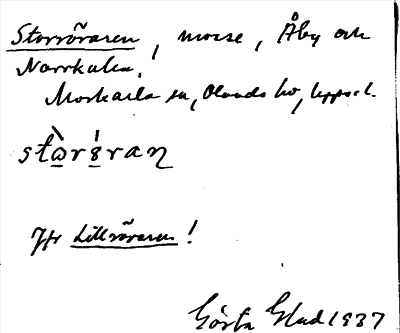 Storröraren, mosse, Åby och
Norrkulla,
Morkarla sn, Olands hd, Uppsl.
Jfr Lillröraren!
Gösta Glad 1937